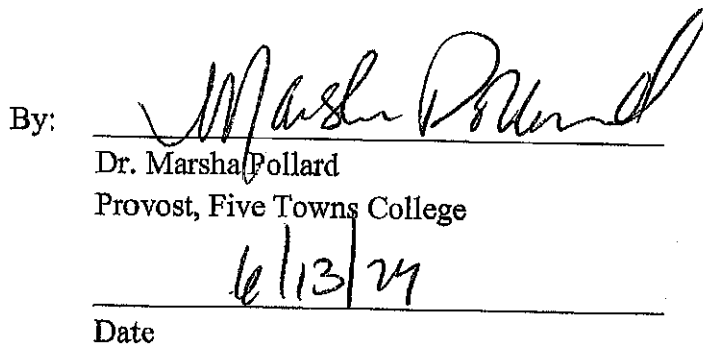 By: Marsha Pollard
Dr. Marsha Pollard
Provost, Five Towns College
6/13/24
Date